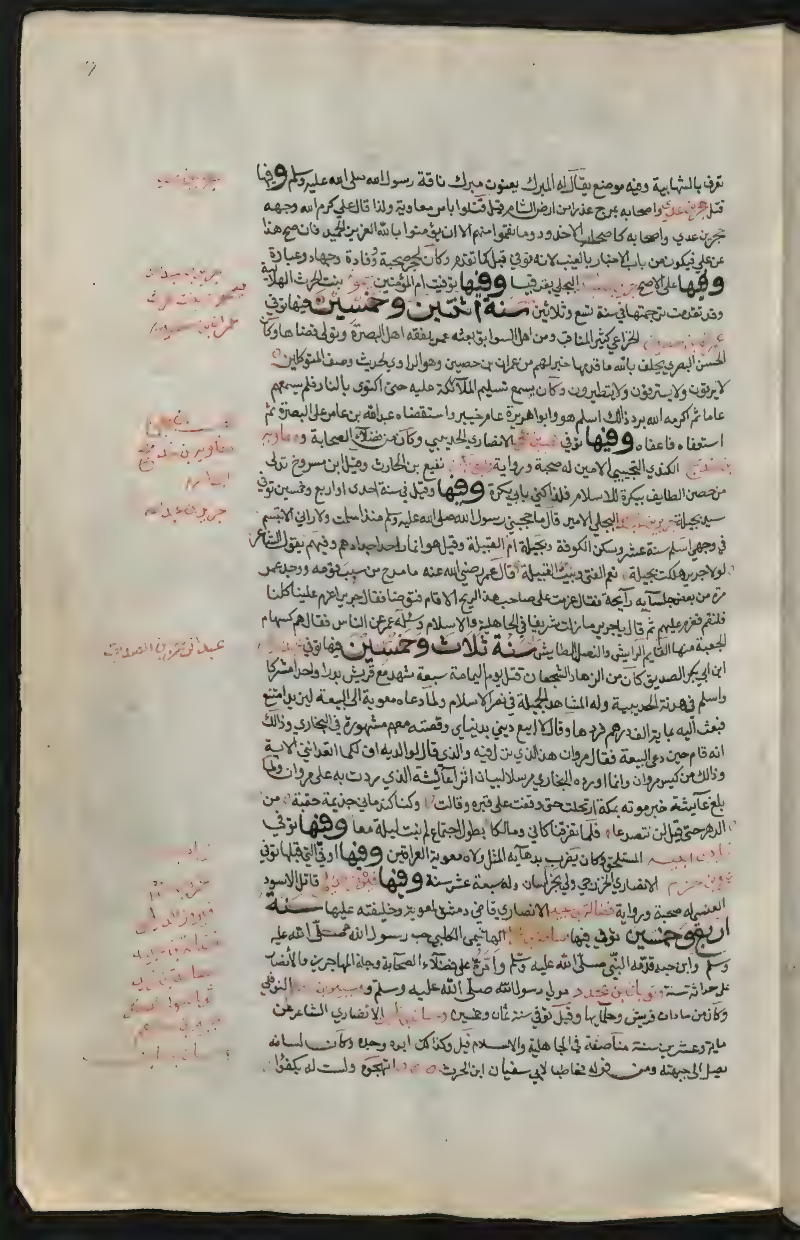 تعرف بالشهابية وفيه موضع يقال له المبرك يعنون مبرك ناقة رسول الله صلى الله عليه وسلم وفيها
قتل حجر بن عدي واصحابه بمرج عذرا من ارض الشام قيل قتلوا باس معاوية ولذا قال علي كرم الله وجهه
حجر بن عدي واصحابه كاصحاب الاخدود وما نقموا منهم الا ان يؤمنوا بالله العزيز الحميد فان صح هذا
عن علي فيكون من باب الاخبار بالغيب لانه توفي قبل كما تقدم وكان لحجر صحبة ووفادة وجهاد وعبادة
وفيها على الاصح البجلي بقرقيسا وفيها توفيت ام المؤمنين بنت الحرث الهلالية
وقد تقدمت ترجمتها في سنة تسع وثلاثين سنة اثنتين وخمسين فيها توفي
الخزاعي كثير المناقب ومن اهل السوابق بعثه عمر يفقه اهل البصرة وتولى قضاها وكان
الحسن البصري يحلف بالله ما قدمها خير لهم من عمران بن حصين وهو الراوي لحديث وصف المتوكلين
لا يرقون ولا يسترقون ولا يتطيرون وكان يسمع تسليم الملائكة عليه حتى اكتوى بالنار فلم يسمعهم
عاما ثم اكرمه الله برد ذلك اسلم هو وابو هريرة عام خيبر واستقضاه عبد الله بن عامر على البصرة ثم
استعفاه فاعفاه وفيها توفي الانصاري الحديبي وكان من فضلاء الصحابة ومعاوية
بن خديج الكندي التجيبي الامين له صحبة ورواية نفيع بن الحارث وقيل ابن مسروح تدلى
من حصن الطايف ببكرة للاسلام فلذا كني بابي بكرة وفيها وقيل في سنة احدى او اربع وخمسين توفي
سيد بجيلة البجلي الامير قال ما حجبني رسول الله صلى الله عليه وسلم منذ اسلمت ولا راني الا تبسم
في وجهي اسلم سنة عشر وسكن الكوفة وبجيلة ام القبيلة وقيل هو انمار احد اجدادهم وفيهم يقول الشاعر
لولا جرير هلكت بجيلة نعم الفتى وبيت القبيلة قال عمر رضي الله عنه ما مدح من سب قومه ووجد عمر
مرة من بعض جلسائه رائحة فقال عزمت على صاحب هذا الريح الا قام فتوضا فقال جرير اعزم علينا كلنا
فلنقم فعزم عليهم ثم قال يا جرير ما زلت شريفا في الجاهلية والاسلام وسئله عمر عن الناس فقال هم كسهام
الجعبة منها القايم الرايش والنصل الطايش سنة ثلاث وخمسين فيها توفي
ابن ابي بكر الصديق كان من الرماة الشجعان قتل يوم اليمامة سبعة شهد مع قريش بدرا واحدا مشركا
واسلم في هدنة الحديبية وله المشاهد الجميلة في نصر الاسلام ولما دعاه معوية الى البيعة ليزيد امتنع
فبعث اليه بماية الف درهم فردها وقال لا ابيع ديني بدنياي وقصته معهم مشهورة في البخاري وذلك
انه قام حين دعى البيعة فقال مروان هذا الذي نزل فيه والذي قال لوالديه اف لكما اتعدانني الاية
وذلك من كيس مروان وانما اورده البخاري مرسلا لبيان اثر عائشة الذي ردت به على مروان ولما
بلغ عائشة خبر موته بمكة ارتحلت حتى وقفت على قبره وقالت وكنا كندماني جذيمة حقبة من
الدهر حتى قيل لن نتصدعا فلما تفرقنا كاني ومالكا لطول اجتماع لم نبت ليلة معا وفيها توفي
زياد بن ابيه المستلحق وكان يضرب بدهايه المثل ولاه معوية العراقين وفيها او في التي قبلها توفي
عمرو بن حزم الانصاري الخزرجي ولي نجران وله سبعة عشر سنة وفيها فيروز قاتل الاسود
العنسي له صحبة ورواية فضالة بن عبيد الانصاري قاضي دمشق لمعوية وخليفته عليها سنة
اربع وخمسين توفي فيها اسامة بن الهاشمي الكلبي حب رسول الله صلى الله عليه
وسلم وابن حبه قدمه النبي صلى الله عليه وسلم وامره على فضلاء الصحابة وجلة المهاجرين والانصار
على حداثة سنه وثوبان بن بجدد مولى رسول الله صلى الله عليه وسلم وجبير بن النوفلي
وكان من سادات قريش وحلمايها وقيل توفي سنة ثمان وخمسين وحسان بن الانصاري الشاعر عن
ماية وعشرين سنة مناصفة في الجاهلية والاسلام قيل وكذلك ابوه وجده وكان لسانه
يصل الى جبهته ومن قوله مخاطبا لابي سفيان ابن الحرث اتهجوه ولست له بكفؤ
حجر بن عدي
جرير بن عبد الله
ميمونة بنت الحرث
عمران بن حصين
معاوية بن خديج
جرير بن عبد الله
عبد الرحمن بن الصديق
زياد
فيروز الديلمي
فضالة بن عبيد
اسامة بن زيد
جبير بن مطعم
حسان بن ثابت